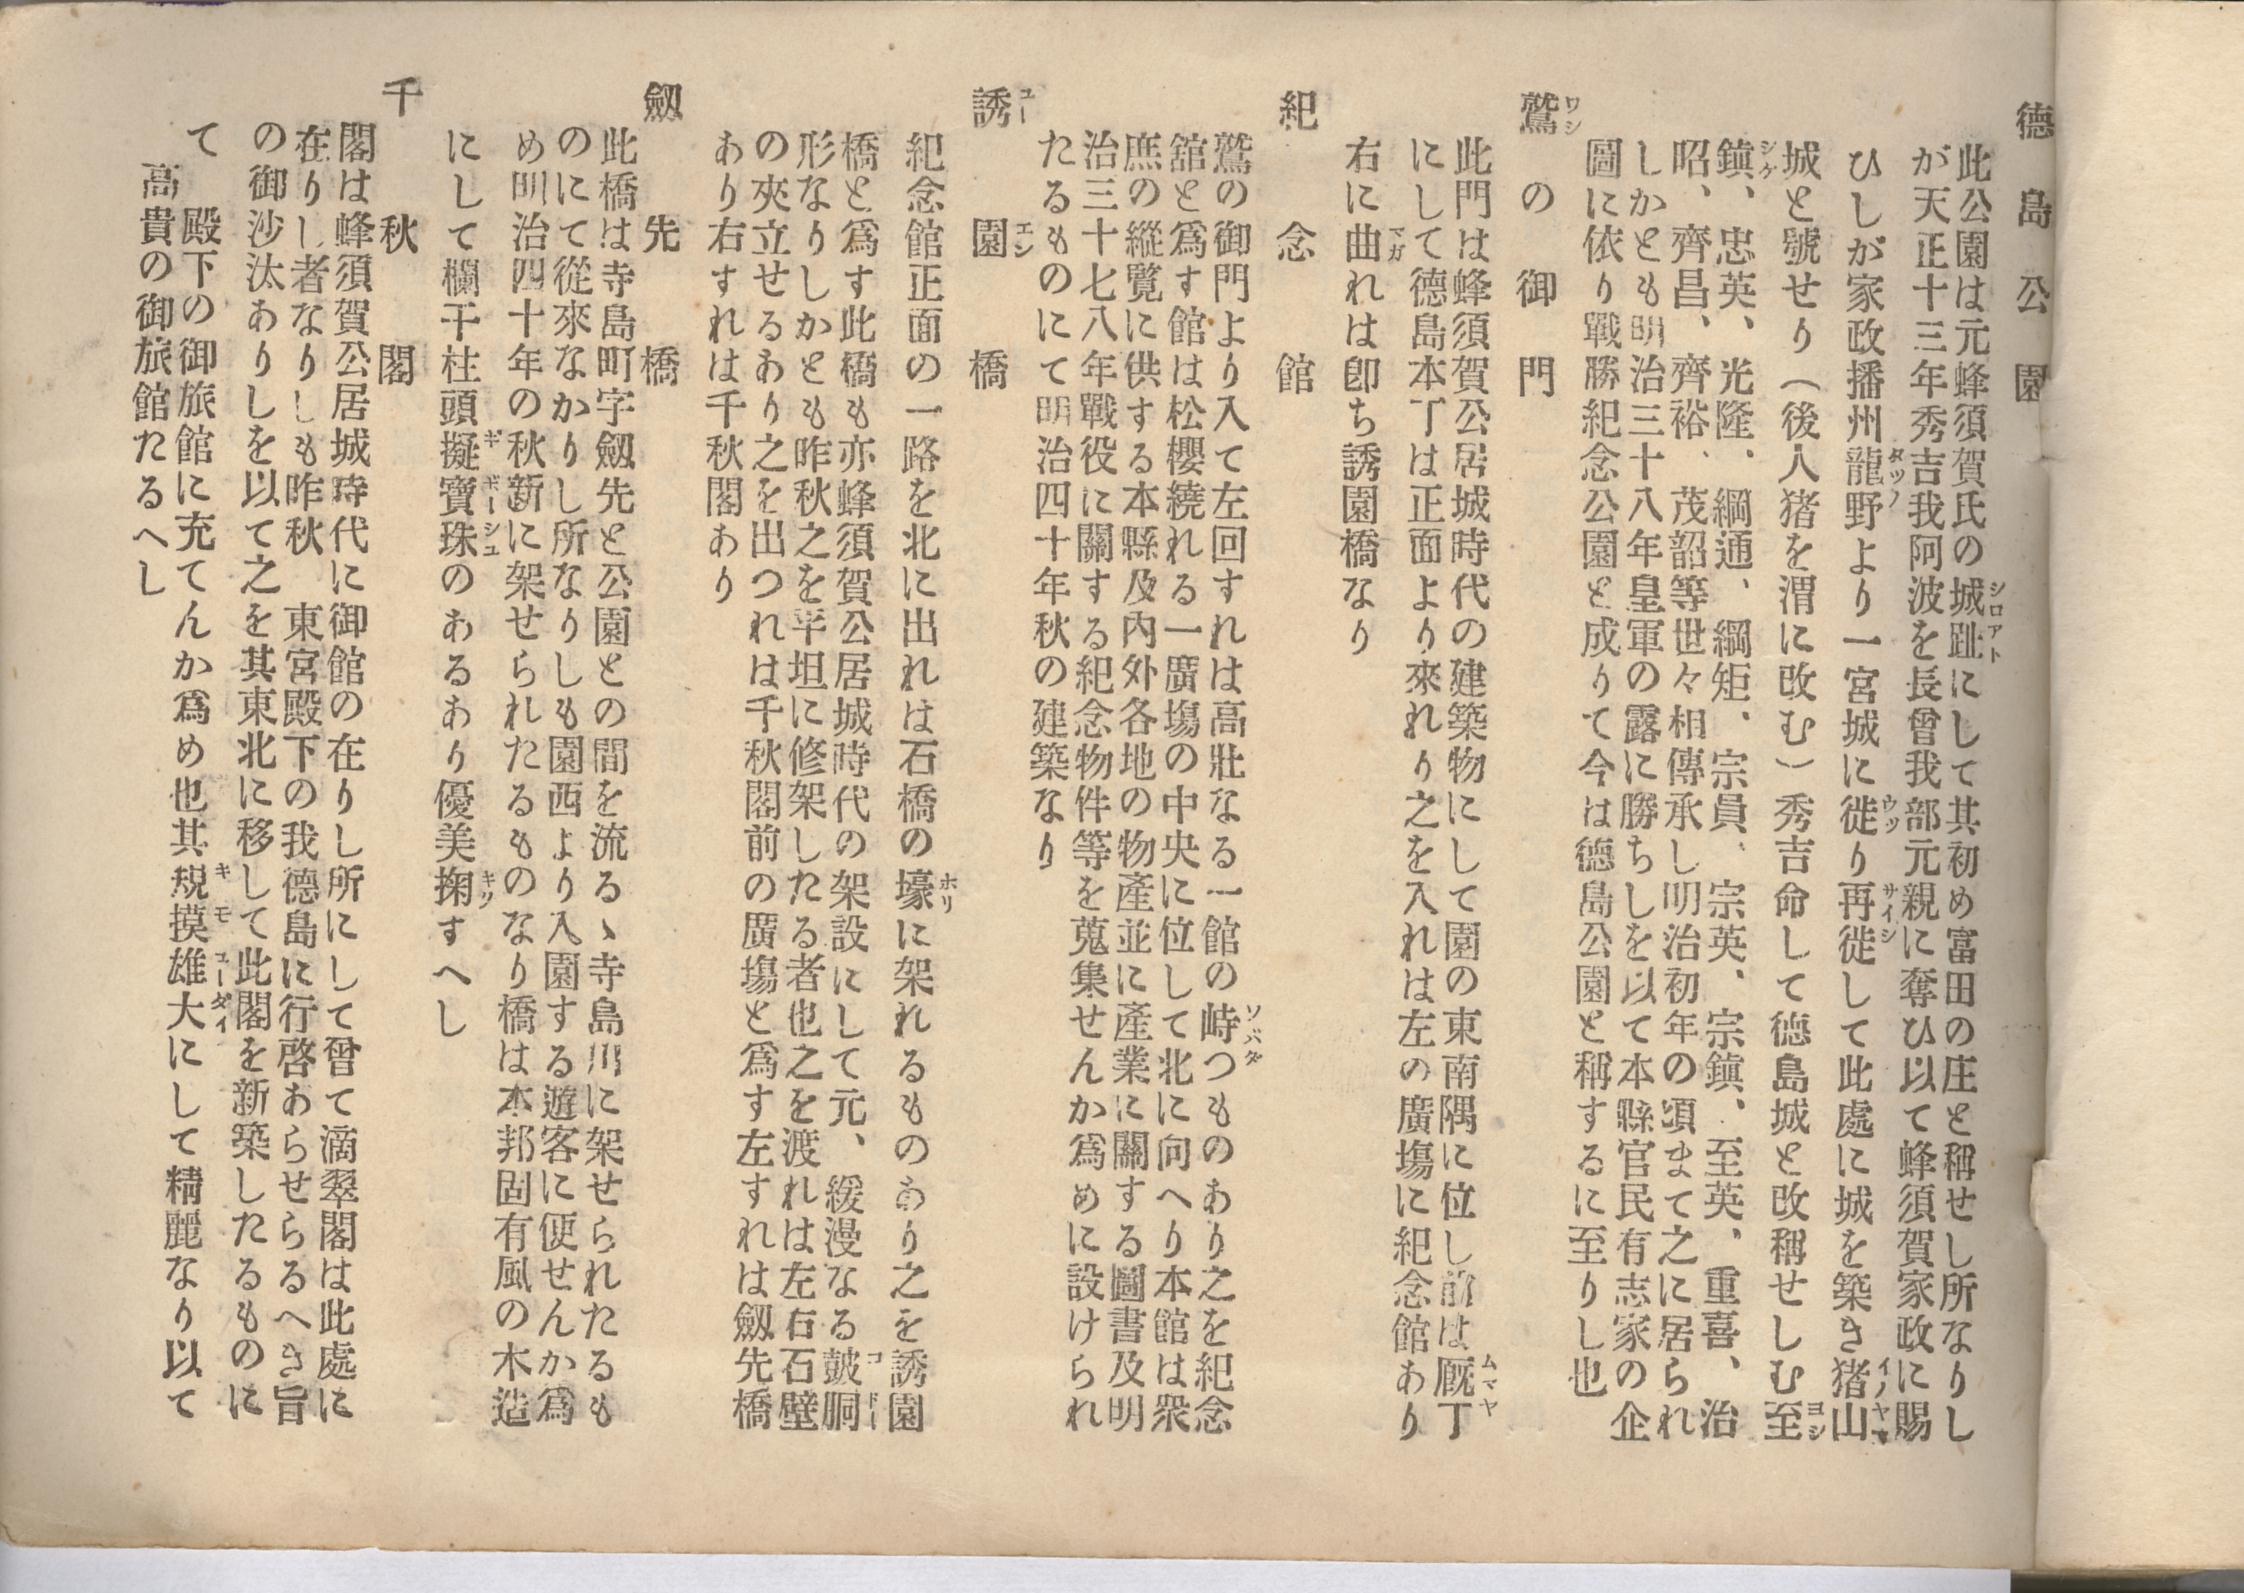 德島公園
此公園は元蜂須賀氏の城趾にして其初め富田の庄と稱せし所なりし
が天正十三年秀吉我阿波を長曾我部元親に奪ひ以て蜂須賀家政に賜
ひしが家政播州龍野より一宮城に徙り再徙して此處に城を築き猪山
城と號せり(後人猪を渭に改む)秀吉命して德島城と改稱せしむ至
鎭、忠英、光隆、綱通、綱矩、宗員、宗英、宗鎭、至英、重喜、治
昭、齊昌、齊裕、茂韶等世々相傳承し明治初年の頃まて之に居られ
しかとも明治三十八年皇軍の露に勝ちしを以て本縣官民有志家の企
圖に依り戰勝紀念公園と成りて今は德島公園と稱するに至りし也
鷲の御門
此門は蜂須賀公居城時代の建築物にして園の東南隅に位し前は厩丁
にして德島本丁は正面より來れり之を入れは左の廣塲に紀念館あり
右に曲れは卽ち誘園橋なり
紀念館
鷲の御門より入て左回すれは高壯なる一館の峙つものあり之を紀念
舘と爲す館は松櫻繞れる一廣塲の中央に位して北に向へり本館は衆
庶の縱覽に供する本縣及內外各地の物產並に產業に關する圖書及明
治三十七八年戰役に關する紀念物件等を蒐集せんか爲めに設けられ
たるものにて明治四十年秋の建築なり
誘園橋
紀念館正面の一路を北に出れは石橋の壕に架れるものあり之を誘園
橋と爲す此橋も亦蜂須賀公居城時代の架設にして元、緩漫なる皷胴
形なりしかとも昨秋之を平坦に修架したる者也之を渡れは左右石壁
の夾立せるあり之を出つれは千秋閣前の廣塲と爲す左すれは劔先橋
あり右すれは千秋閣あり
劔先橋
此橋は寺島町字劔先と公園との間を流るゝ寺島川に架せられたるも
のにて從來なかりし所なりしも園西より入園する遊客に便せんか爲
め明治四十年の秋新に架せられたるものなり橋は本邦固有風の木造
にして欄干柱頭擬寶珠のあるあり優美掬すへし
千秋閣
閣は蜂須賀公居城時代に御館の在りし所にして曾て滴翠閣は此處に
在りし者なりしも昨秋 東宮殿下の我德島に行啓あらせらるへき旨
の御沙汰ありしを以て之を其東北に移して此閣を新築したるものに
て 殿下の御旅館に充てんか爲め也其規摸雄大にして精麗なり以て
高貴の御旅館たるへし